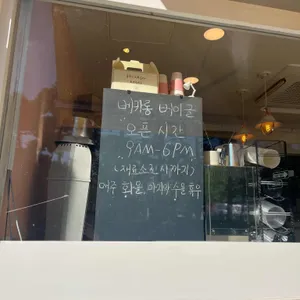 베카룸 베이글
오픈 시간
9AM-6PM
(재료소진시까지)
매주 화요일, 마지막 수요일 휴무